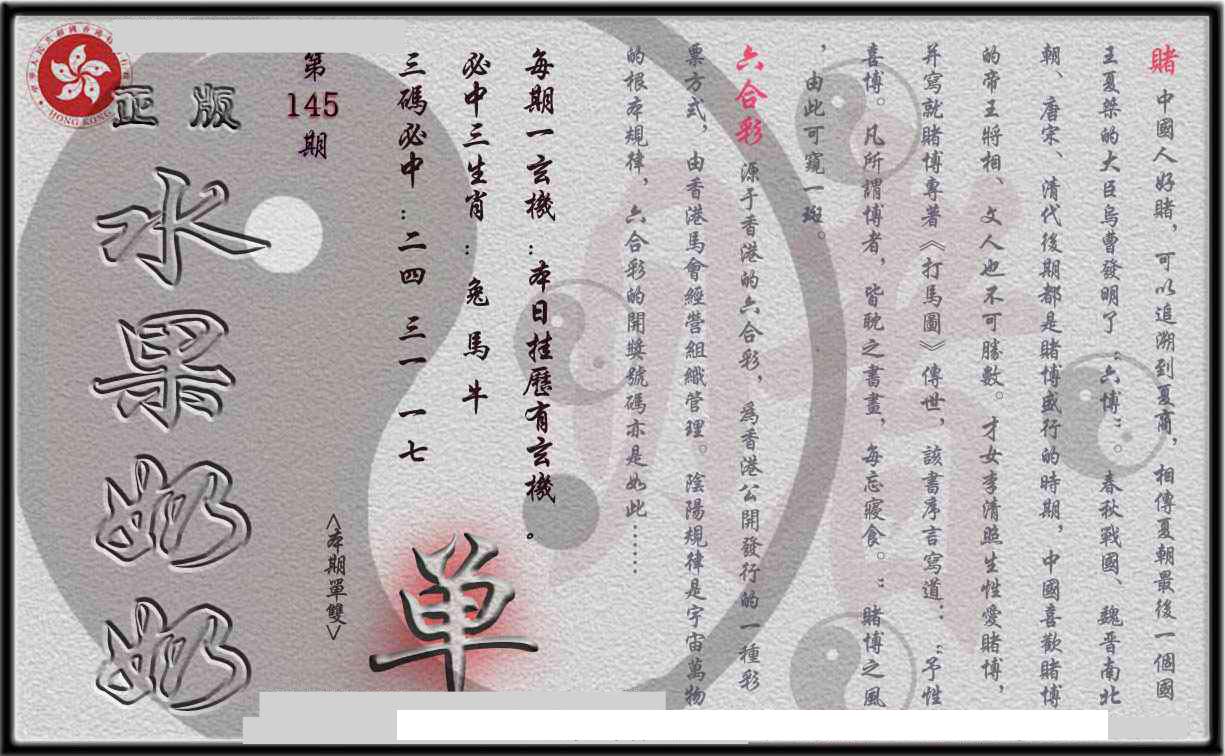 賭 中國人好賭，可以追溯到夏商，相傳夏朝最後一個國
王夏桀的大臣烏曹發明了“六博”。春秋戰國、魏晋南北
朝、唐宋、清代後期都是賭博盛行的時期，中國喜歡賭博
的帝王將相、文人也不可勝數。才女李清照生性愛賭博，
并寫就賭博專著《打馬圖》傳世，該書序言寫道：“予性
喜博。凡所謂博者，皆耽之晝晝，每忘寢食。”賭博之風
，由此可窺一斑。
六合彩 源于香港的六合彩，爲香港公開發行的一種彩
票方式，由香港馬會經營組織管理。陰陽規律是宇宙萬物
的根本規律，六合彩的開獎號碼亦是如此……
每期一玄機：本日挂歷有玄機。
必中三生肖：兔 馬 牛
三碼必中：二四 三一 一七
單
<本期單雙>
第
145
期
正版
水果奶奶
HONG KONG